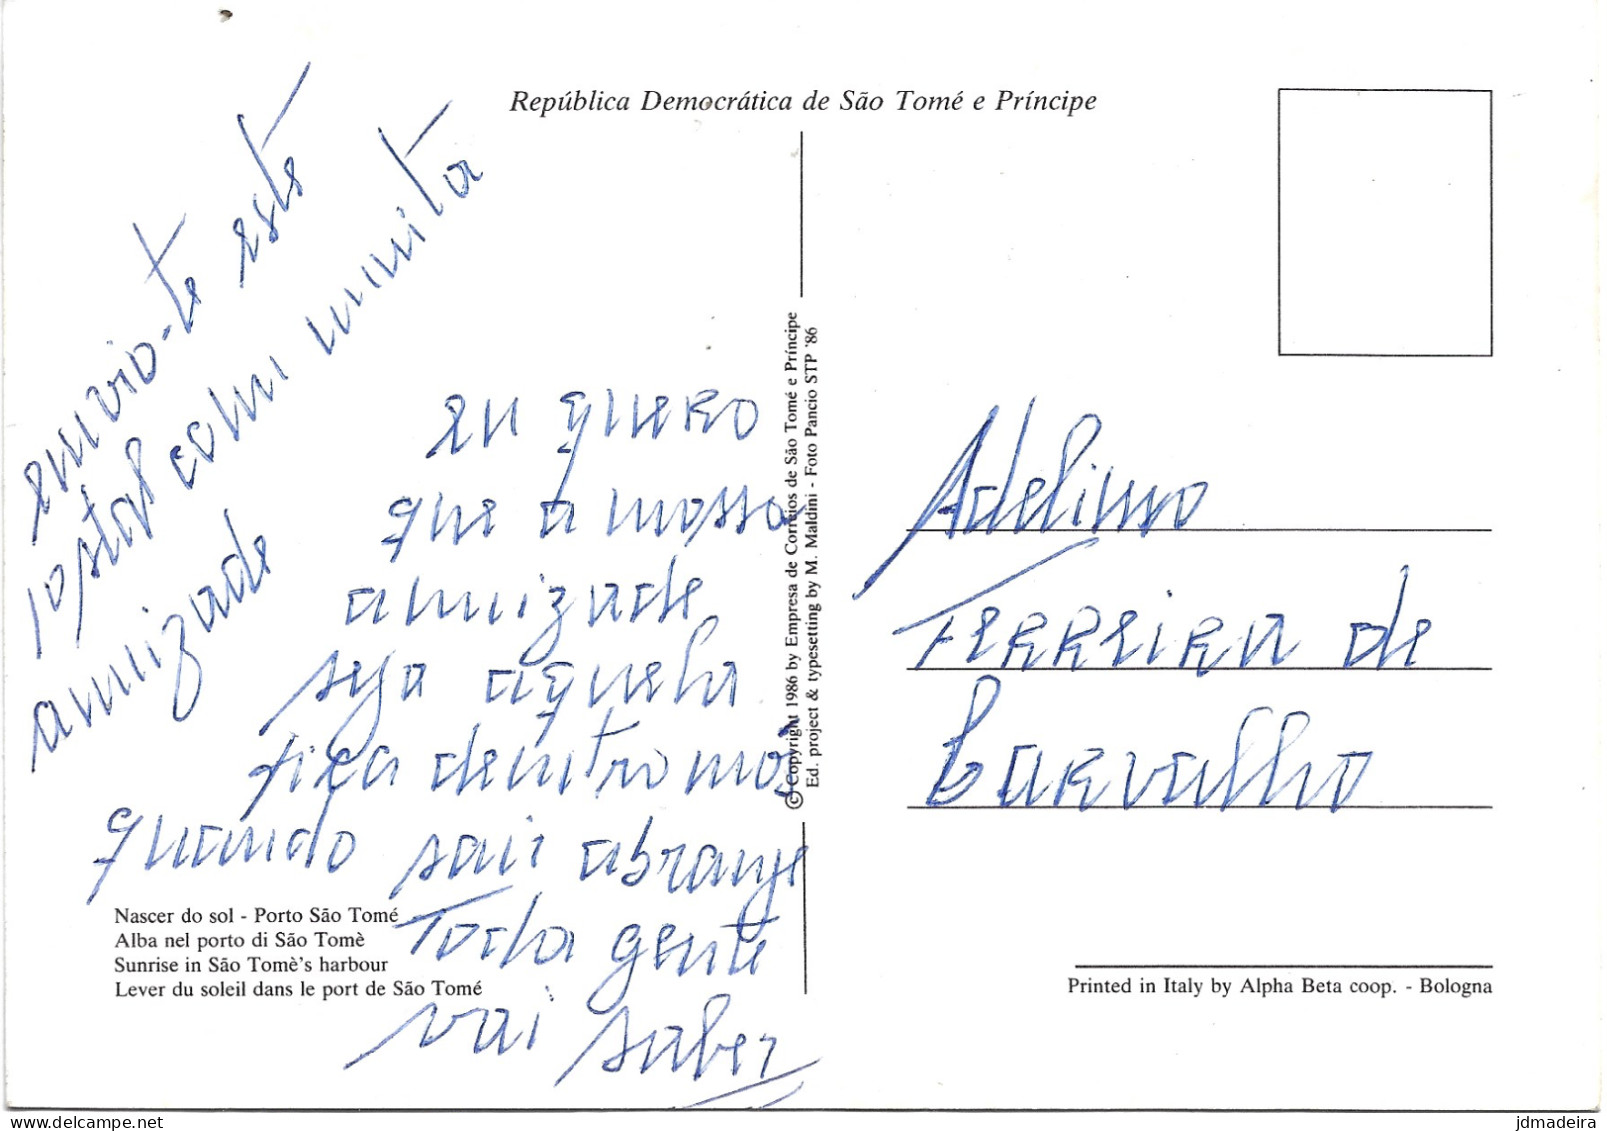 República Democrática de São Tomé e Príncipe
envio-te este
postal com muita
amizade
eu quero
que a nossa
amizade
seja aquela
fica dentro nós
quando sair abrange
Toda gente
vai saber
Nascer do sol - Porto São Tomé
Alba nel porto di São Tomè
Sunrise in São Tomè's harbour
Lever du soleil dans le port de São Tomé
© Copyright 1986 by Empresa de Correios de São Tomé e Príncipe
Ed. project & typesetting by M. Maldini - Foto Pancio STP '86
Adelino
Ferreira de
Carvalho
Printed in Italy by Alpha Beta coop. - Bologna
jdmadeira